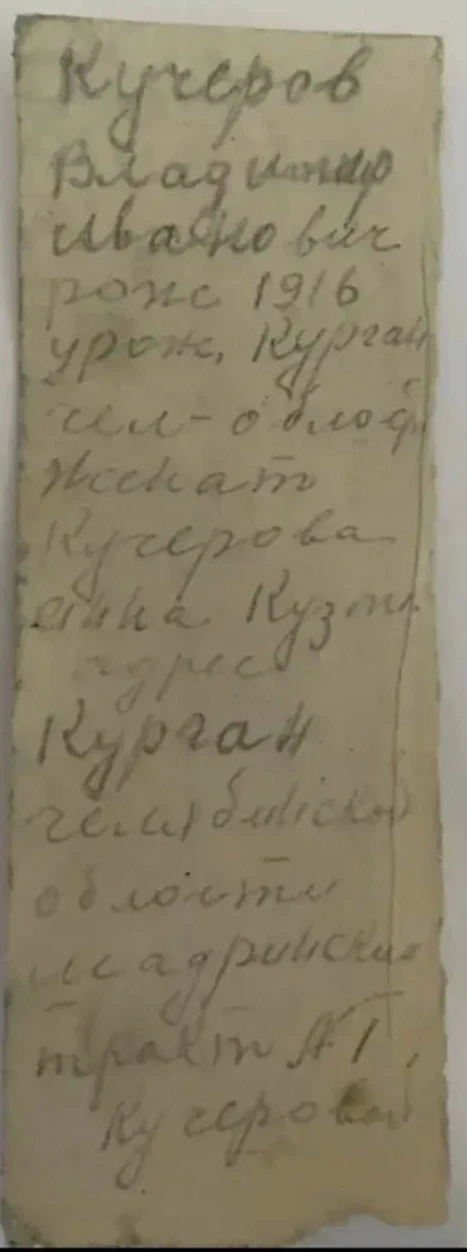 Кучеров
Владимир
Иванович
рож 1916
урож. Курган
чел-облос
женат
Кучерова
Анна Кузьм
адрес
Курган
челябинской
области
шадринский
тракт №1
Кучеровой